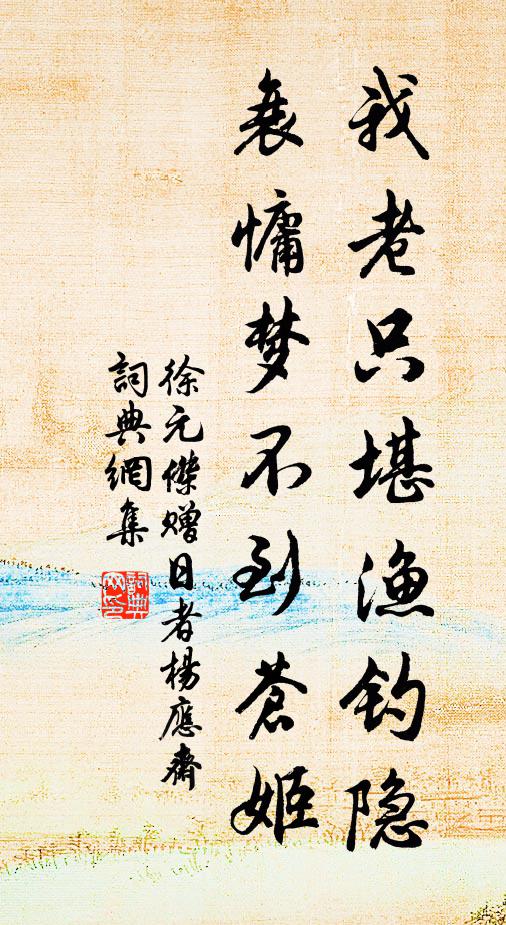 我老只堪渔钓隐
衰慵梦不到苍姬
徐元杰赠日者杨应斋
詞典網集